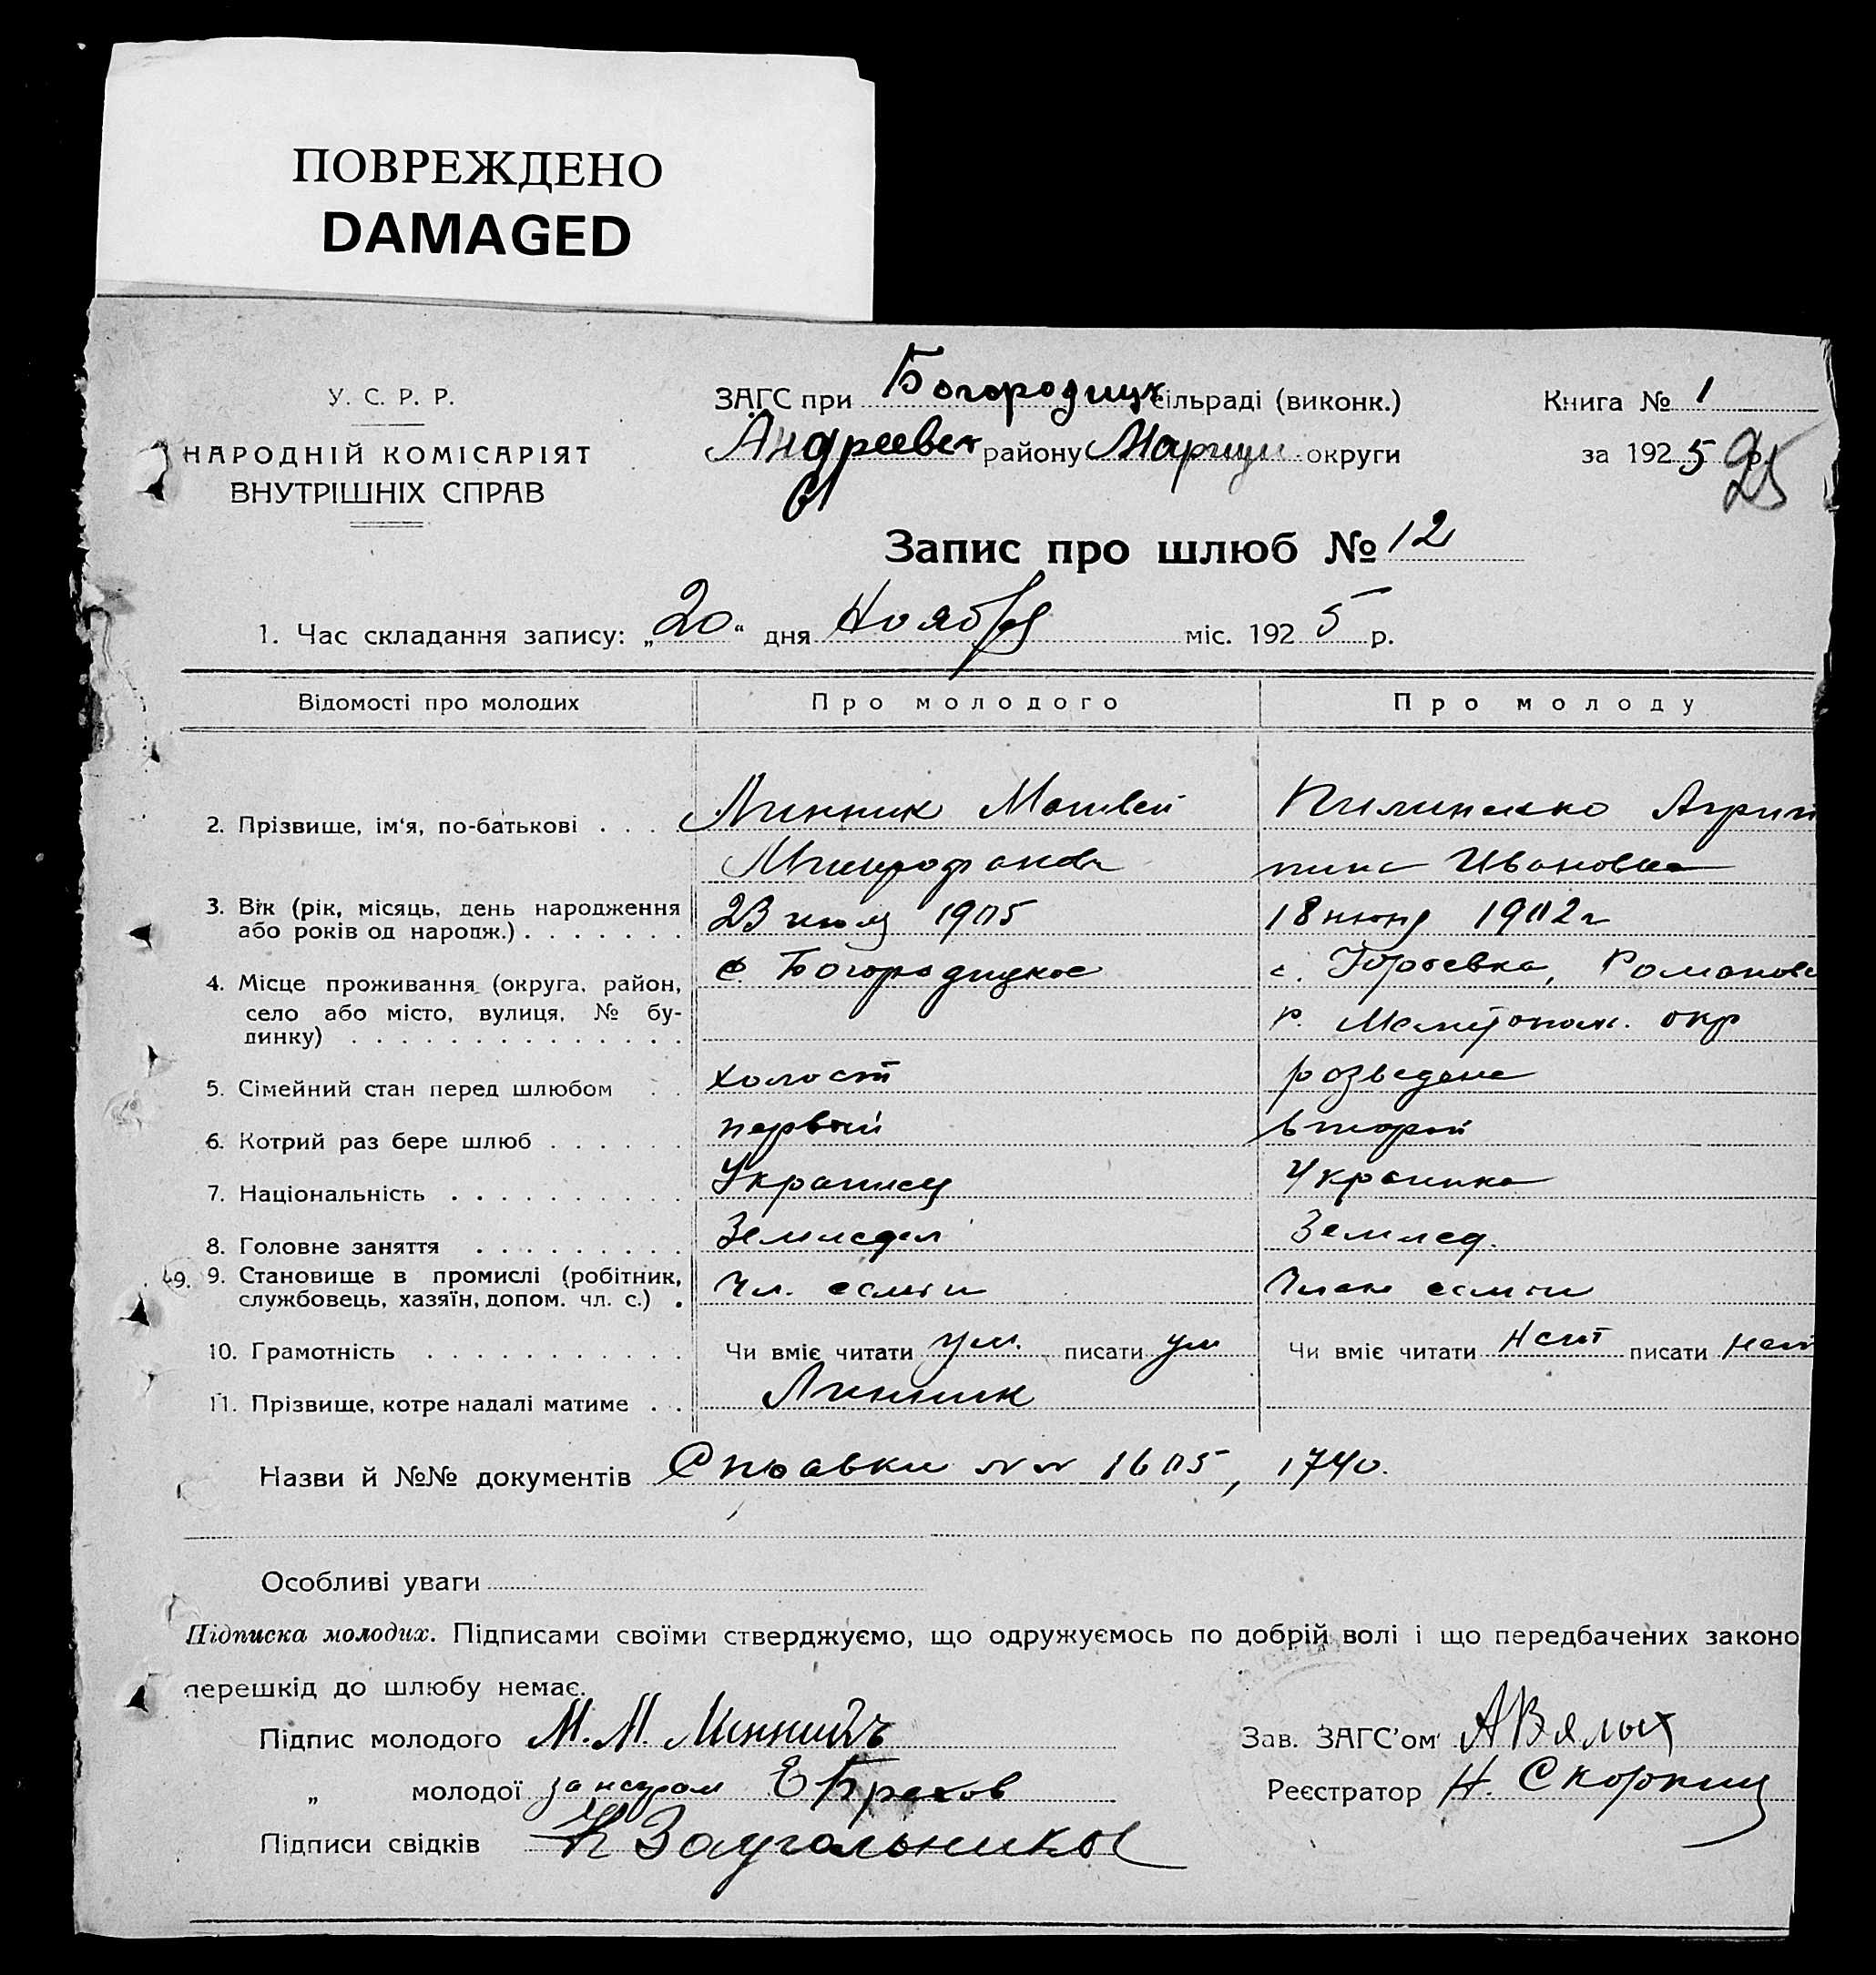 ПОВРЕЖДЕНО
DAMAGED
У. С. Р. Р.
НАРОДНІЙ КОМІСАРІЯТ
ВНУТРІШНІХ СПРАВ
ЗАГС при Богородицк сільраді (виконк.)
Андреевск району Мариуп. округи
Книга № 1
за 1925 р.
25
Запис про шлюб № 12
1. Час складання запису: „20“ дня Ноября міс. 1925 р.
Відомості про молодих Про молодого Про молоду
2. Прізвище, ім‘я, по-батькові . . . . Линник Матвей Пилипенко Агрип
Митрофанов пина Ивановна
3. Вік (рік, місяць, день народження 23 июля 1905 18 июня 1902 г
або років од народж.) . . . . . . .
4. Місце проживання (округа, район, с. Богородицкое с. Романовс
село або місто, вулиця, № бу- р. Мелитопол. окр
динку) . . . . . . . . . . . . . .
5. Сімейний стан перед шлюбом . . холост розведена
6. Котрий раз бере шлюб . . . . . . первый второй
7. Національність . . . . . . . . . . Украинец Украинка
8. Головне заняття . . . . . . . . . Земледел Землед.
49. 9. Становище в промислі (робітник, Чл. семьи Член семьи
службовець, хазяїн, допом. чл. с.) .
10. Грамотність . . . . . . . . . . . Чи вміє читати ум. писати ум Чи вміє читати нет писати нет
11. Прізвище, котре надалі матиме . . Линник
Назви й №№ документів Справки №№ 1605, 1740.
Особливі уваги
Підписка молодих. Підписами своїми стверджуємо, що одружуємось по добрій волі і що передбачених законо
перешкід до шлюбу немає.
Підпис молодого М. М. Линникъ Зав. ЗАГС’ом А Вялых
„ молодої за негром Е Брехов Реєстратор Н. Скорпиц
Підписи свідків Заугольников